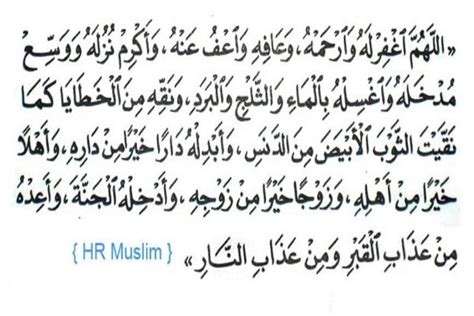 «اللَّهُمَّ ٱغْفِرْ لَهُ وَٱرْحَمْهُ، وَعَافِهِ وَٱعْفُ عَنْهُ، وَأَكْرِمْ نُزُلَهُ وَوَسِّعْ
مُدْخَلَهُ وَٱغْسِلْهُ بِٱلْمَاءِ وَٱلثَّلْجِ وَٱلْبَرَدِ، وَنَقِّهِ مِنَ ٱلْخَطَايَا كَمَا
نَقَّيْتَ الثَّوْبَ ٱلْأَبْيَضَ مِنَ الدَّنَسِ، وَأَبْدِلْهُ دَارًا خَيْرًا مِنْ دَارِهِ، وَأَهْلًا
خَيْرًا مِنْ أَهْلِهِ، وَزَوْجًا خَيْرًا مِنْ زَوْجِهِ، وَأَدْخِلْهُ ٱلْجَنَّةَ، وَأَعِذْهُ
مِنْ عَذَابِ ٱلْقَبْرِ وَمِنْ عَذَابِ النَّارِ» { HR Muslim }